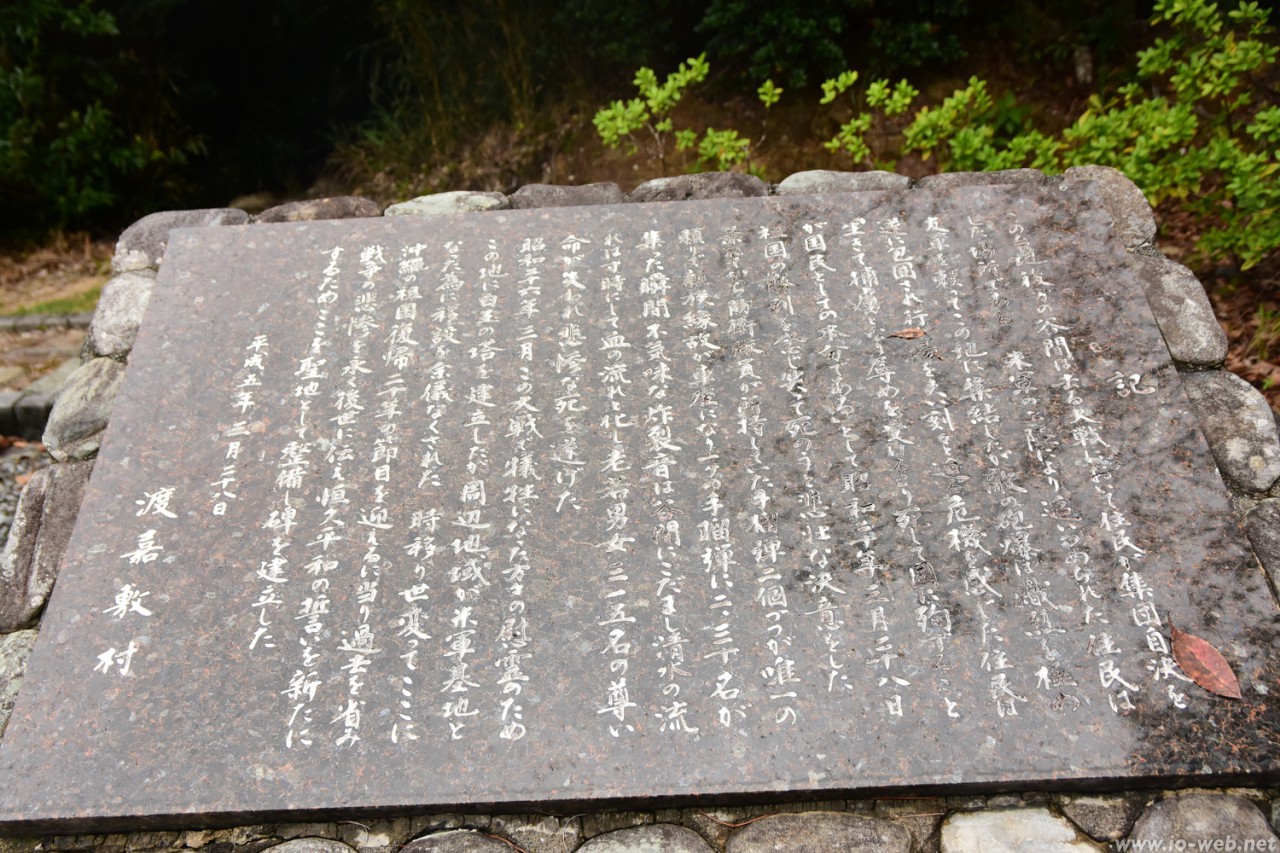 記
この台地後方の谷間は去る大戦において住民が集団自決を
した場所である 米軍の上陸により追いつめられた住民は
友軍を頼ってこの地に集結したが敵の砲爆は熾烈を極め
遂に包囲され行き場を失い刻
危機を感じた住民は
生きて捕虜となり辱めを受けるより死して国に殉ずることと
が国民としての本分であるとして昭和二十年三月二十八日
祖国の勝利を念じ笑って死のうと悲壮な決意をした
兼ねてから防衛隊員が所持した手榴弾二個づつが唯一の
頼りで親族縁故が車座になり一ヶの手榴弾に二、三十名が
集った瞬間不気味な炸裂音は谷間にこだまし清水の流
れは寸時にして血の流れと化し老若男女三一五名の尊い
命が失われ悲惨な死を遂げた
昭和二十六年三月この大戦で犠牲になった方々の慰霊のため
この地に白玉の塔を建立したが周辺地域が米軍基地と
なった為に移設を余儀なくされた 時移り世変ってここに
沖縄の祖国復帰二十年の節目を迎えるに当り過去を省み
戦争の悲惨を永く後世に伝え恒久平和の誓いを新たに
するためここを聖地として整備し碑を建立した
平成五年三月二十八日
渡嘉敷村
www.io-web.net